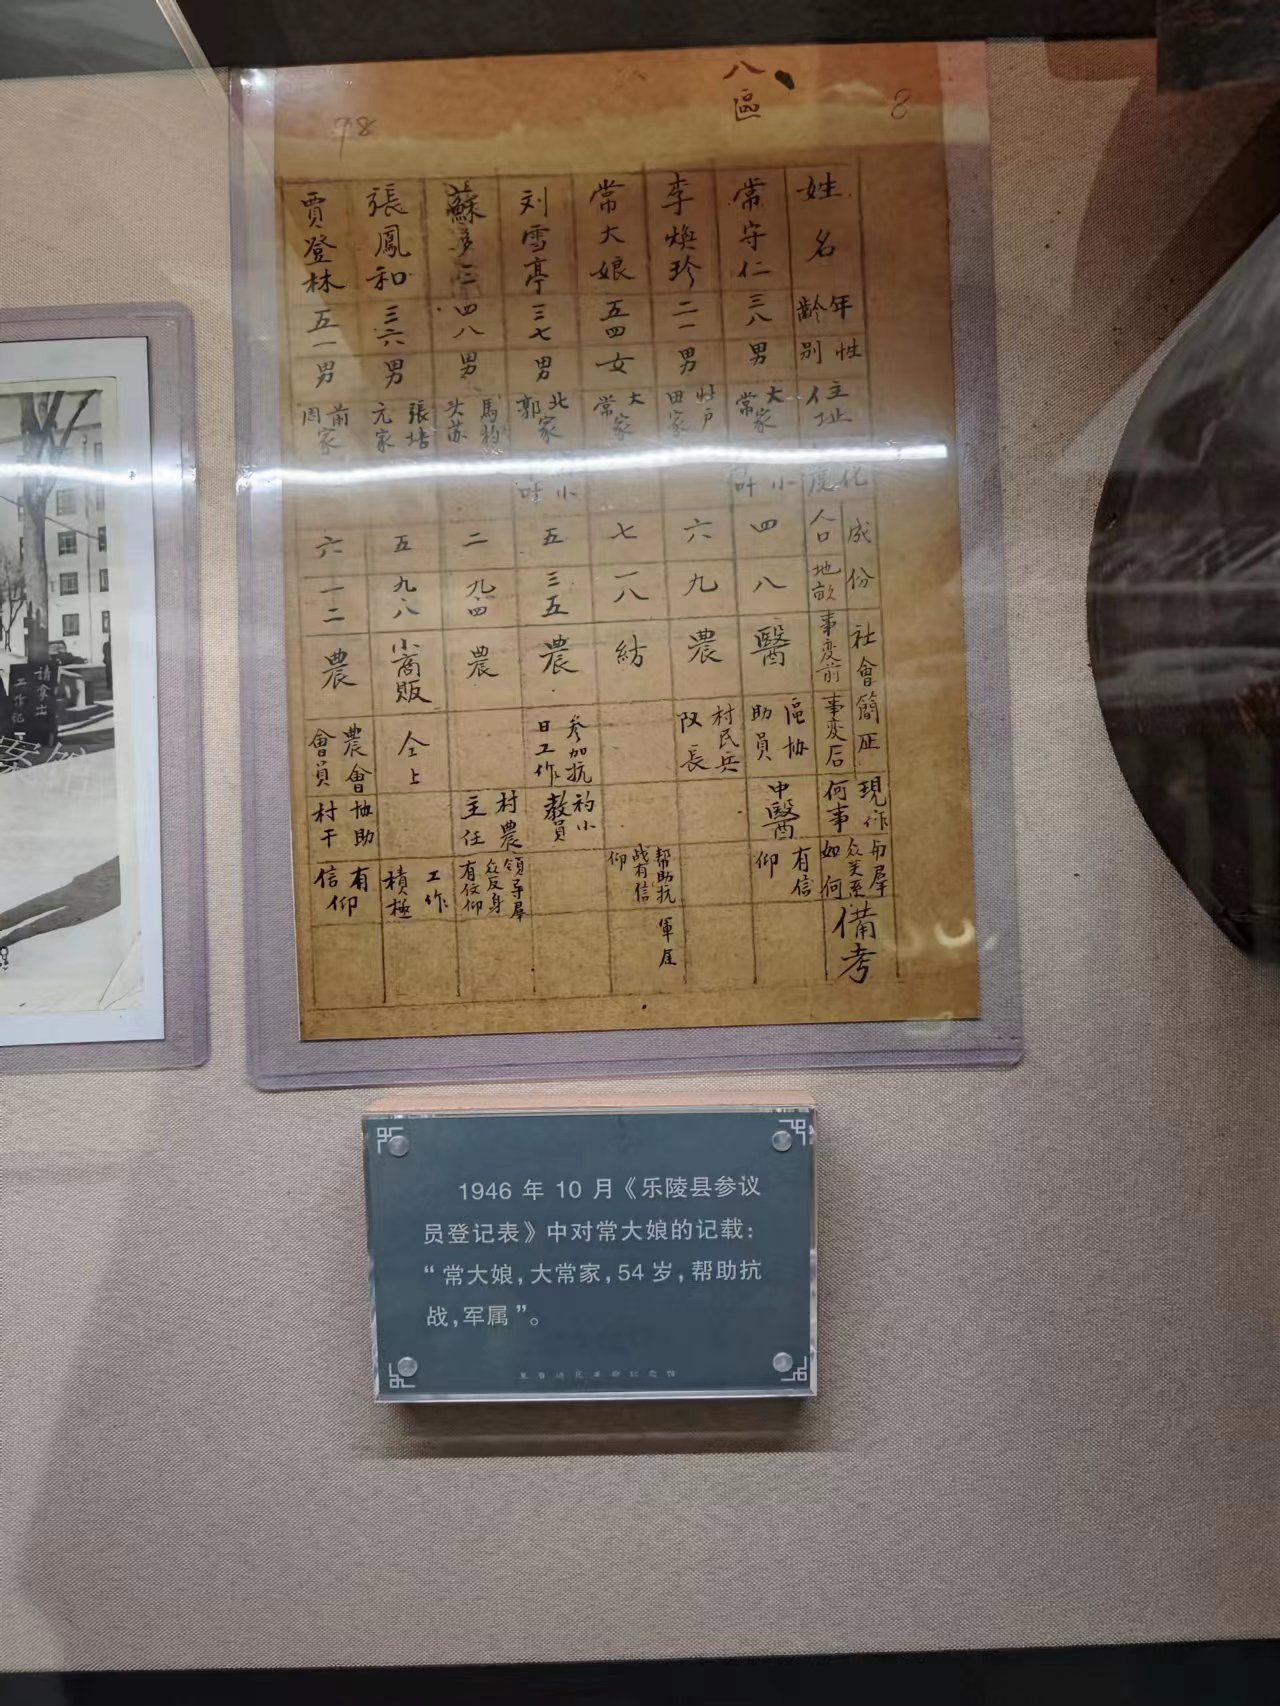 八區
8
98
姓名
年齡
性别
住址
化度
成份
人口
地畝
社會簡歷
事変前
事変后
現作何事
与羣众关系如何
備考
常守仁
三八
男
大常家
小叶
四
八
醫
區协助員
中醫
有信仰
李煥珍
二一
男
田家
六
九
農
村民兵队長
常大娘
五四
女
大常家
七
一八
紡
帮助抗战有信仰
軍属
刘雪亭
三七
男
北郭家
小
五
三五
農
参加抗日工作
初小教員
蘇
四八
男
二
九四
農
村農主任
領导羣众反身有信仰
張鳳和
三六
男
五
九八
小商販
仝上
工作積極
賈登林
五一
男
前周家
六
一二
農
農會會員
協助村干
有信仰
請拿出
工作記
1946 年 10 月《乐陵县参议
员登记表》中对常大娘的记载：
“常大娘，大常家，54 岁，帮助抗
战，军属”。
冀鲁边区革命纪念馆